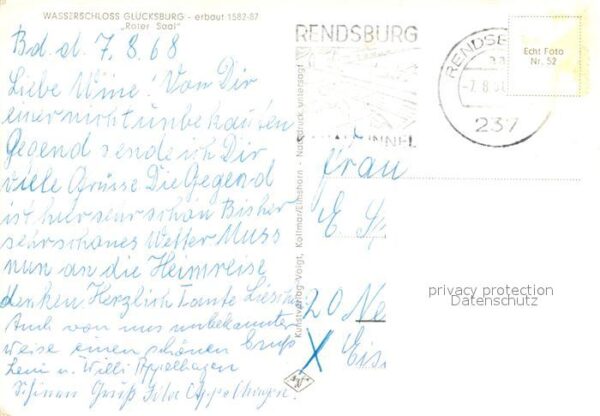 WASSERSCHLOSS GLÜCKSBURG - erbaut 1582-87
„Roter Saal"
Bd. d. 7.8.68
Liebe Wine! Von Dir
einer nicht unbekanten
Gegend sende ich Dir
viele Grüsse Die Gegend
ist hier sehr schön Bisher
sehr schönes Wetter Muss
nun an die Heimreise
denken Herzlich Tante Liesch
Auch von uns unbekannter
weise einen schönen Gruß
Leni u. Willi Appelhagen
Schönen Gruß
Kunstverlag Voigt, Kollmar/Elmshorn - Nachdruck untersagt
RENDSBURG
TUNNEL
RENDSB
237
Echt Foto
Nr. 52
Frau
E. S
20 Ne
X Eis
privacy protection
Datenschutz